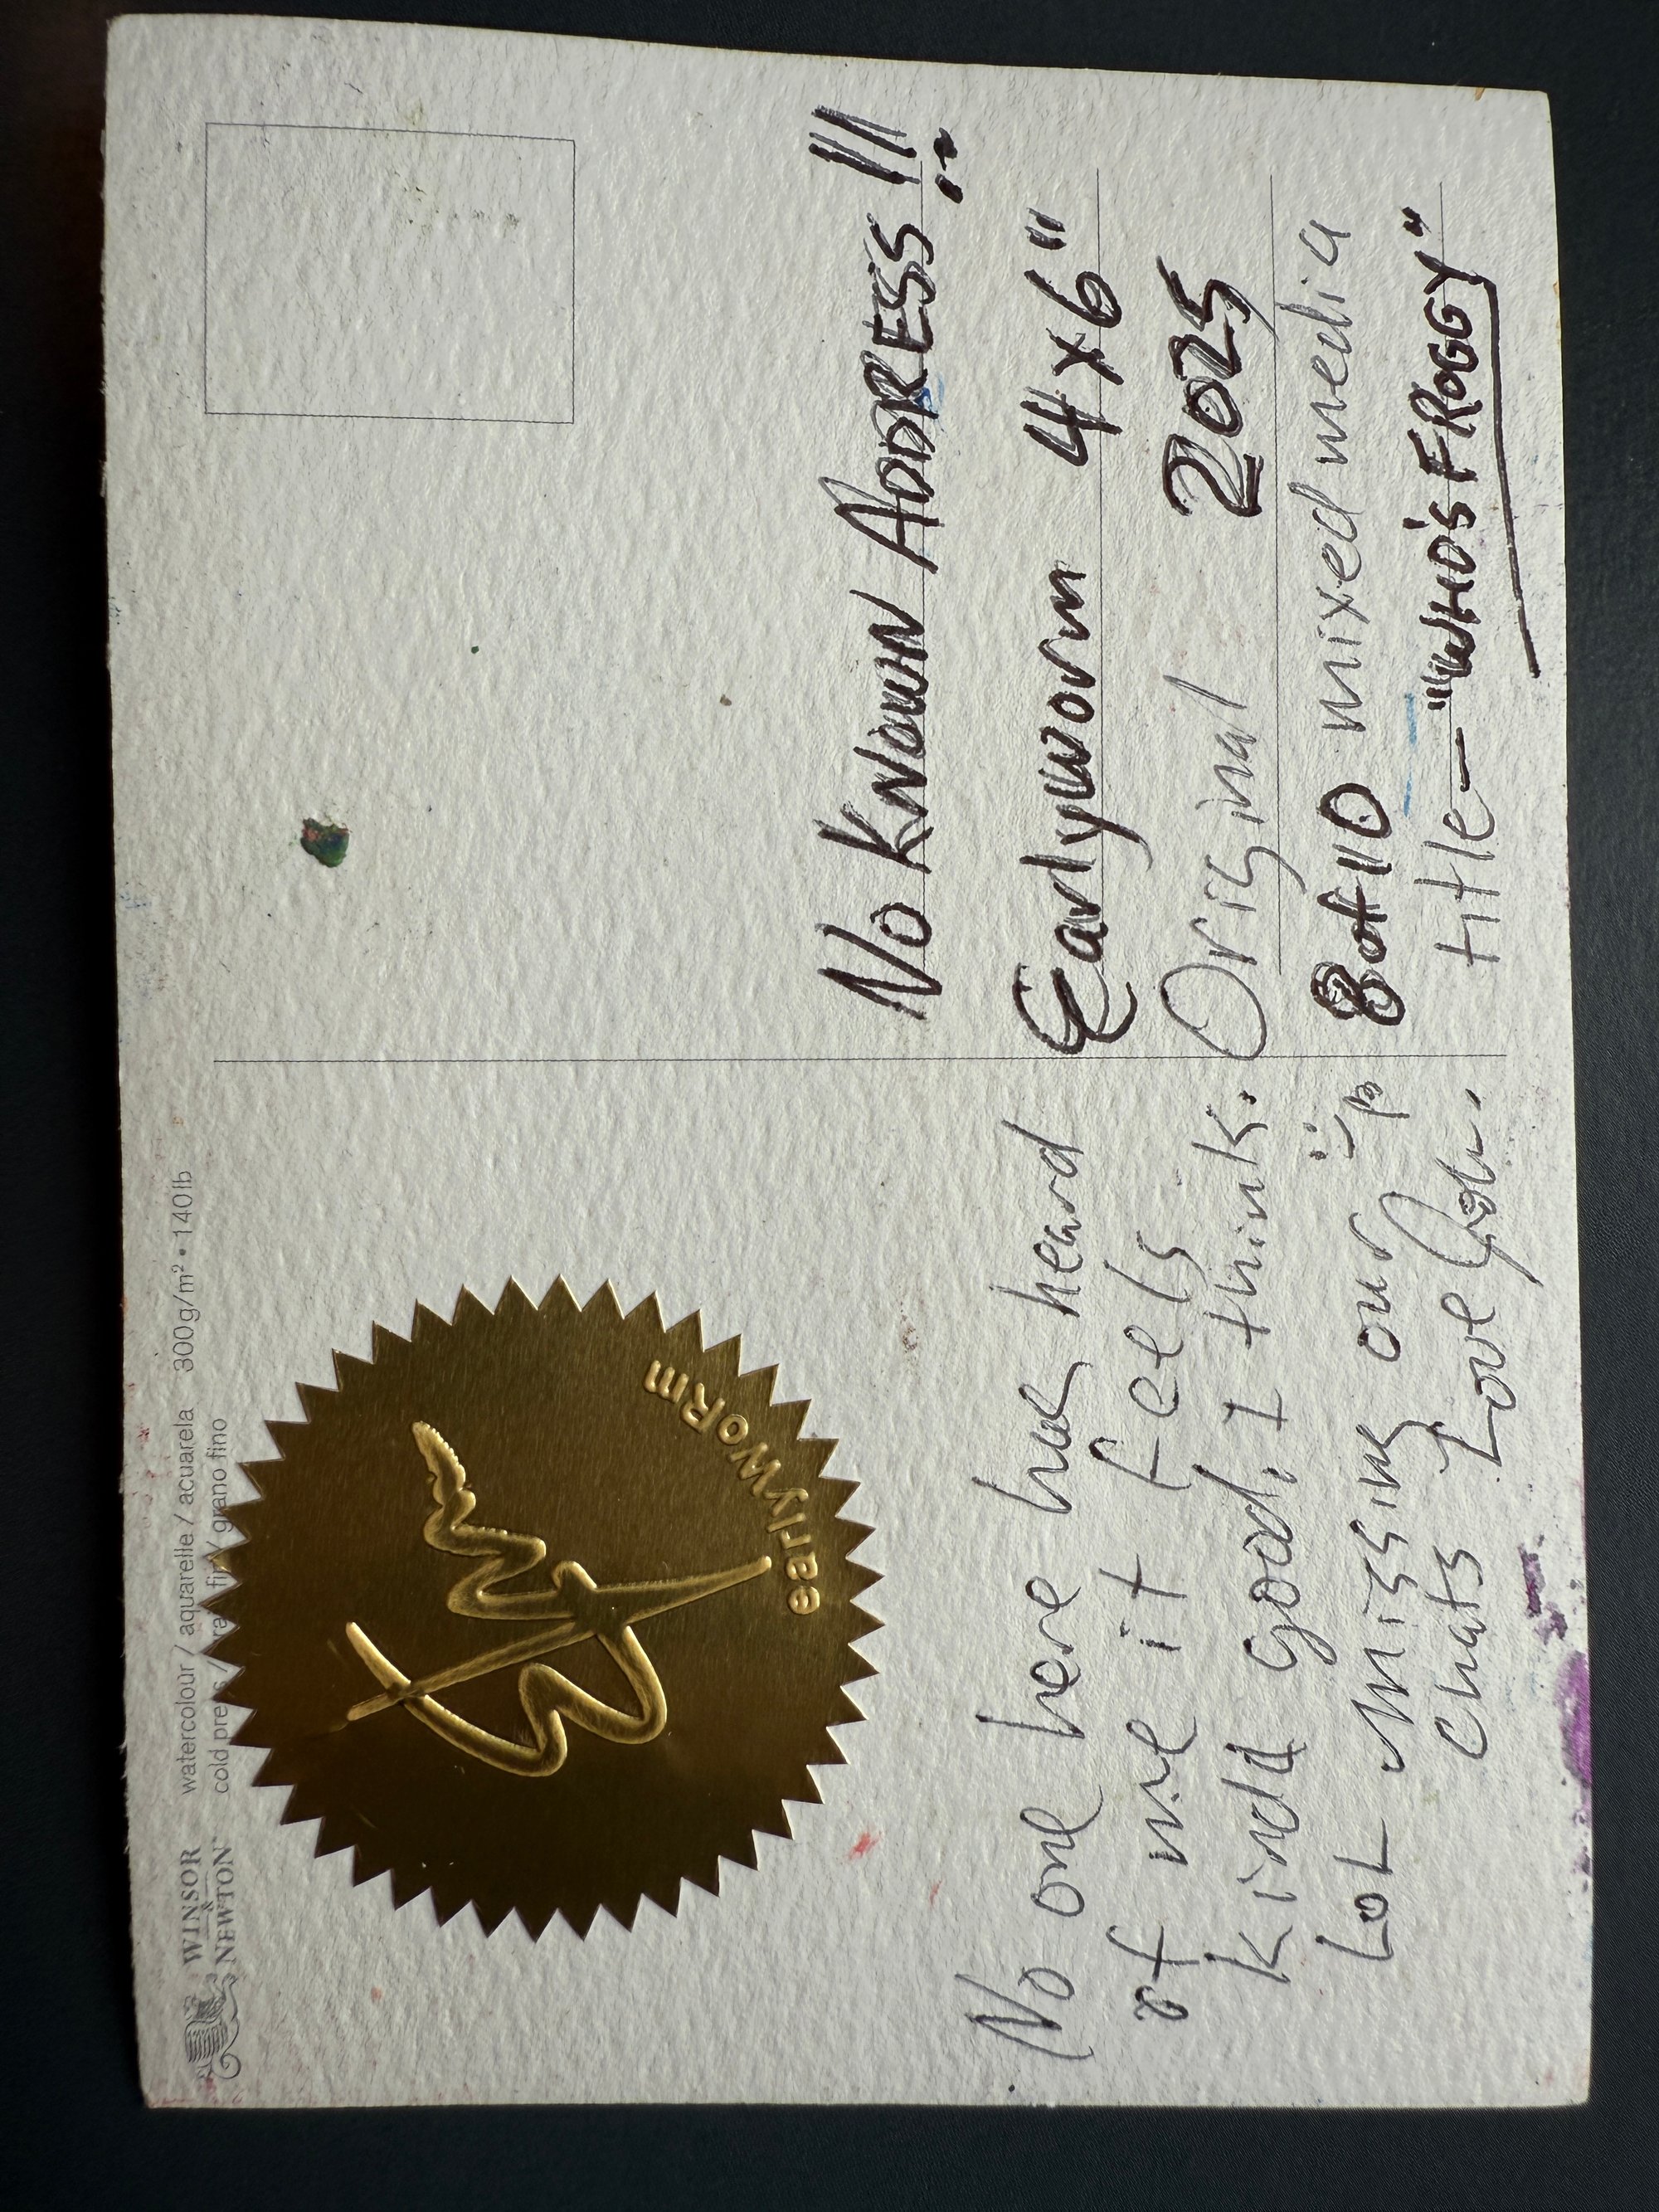 WINSOR
&
NEWTON
watercolour / aquarelle / acuarela 300g/m² • 140lb
cold press / fin / grano fino
earlyWORm
No one here has heard
of me it feels
kinda good, I think.
LOL Missing our
chats Love
No KNOWN ADDRESS !!!
Earlyworm 4x6"
Original 2025
8 of 10 mixed media
title — "WHO'S FROGGY"